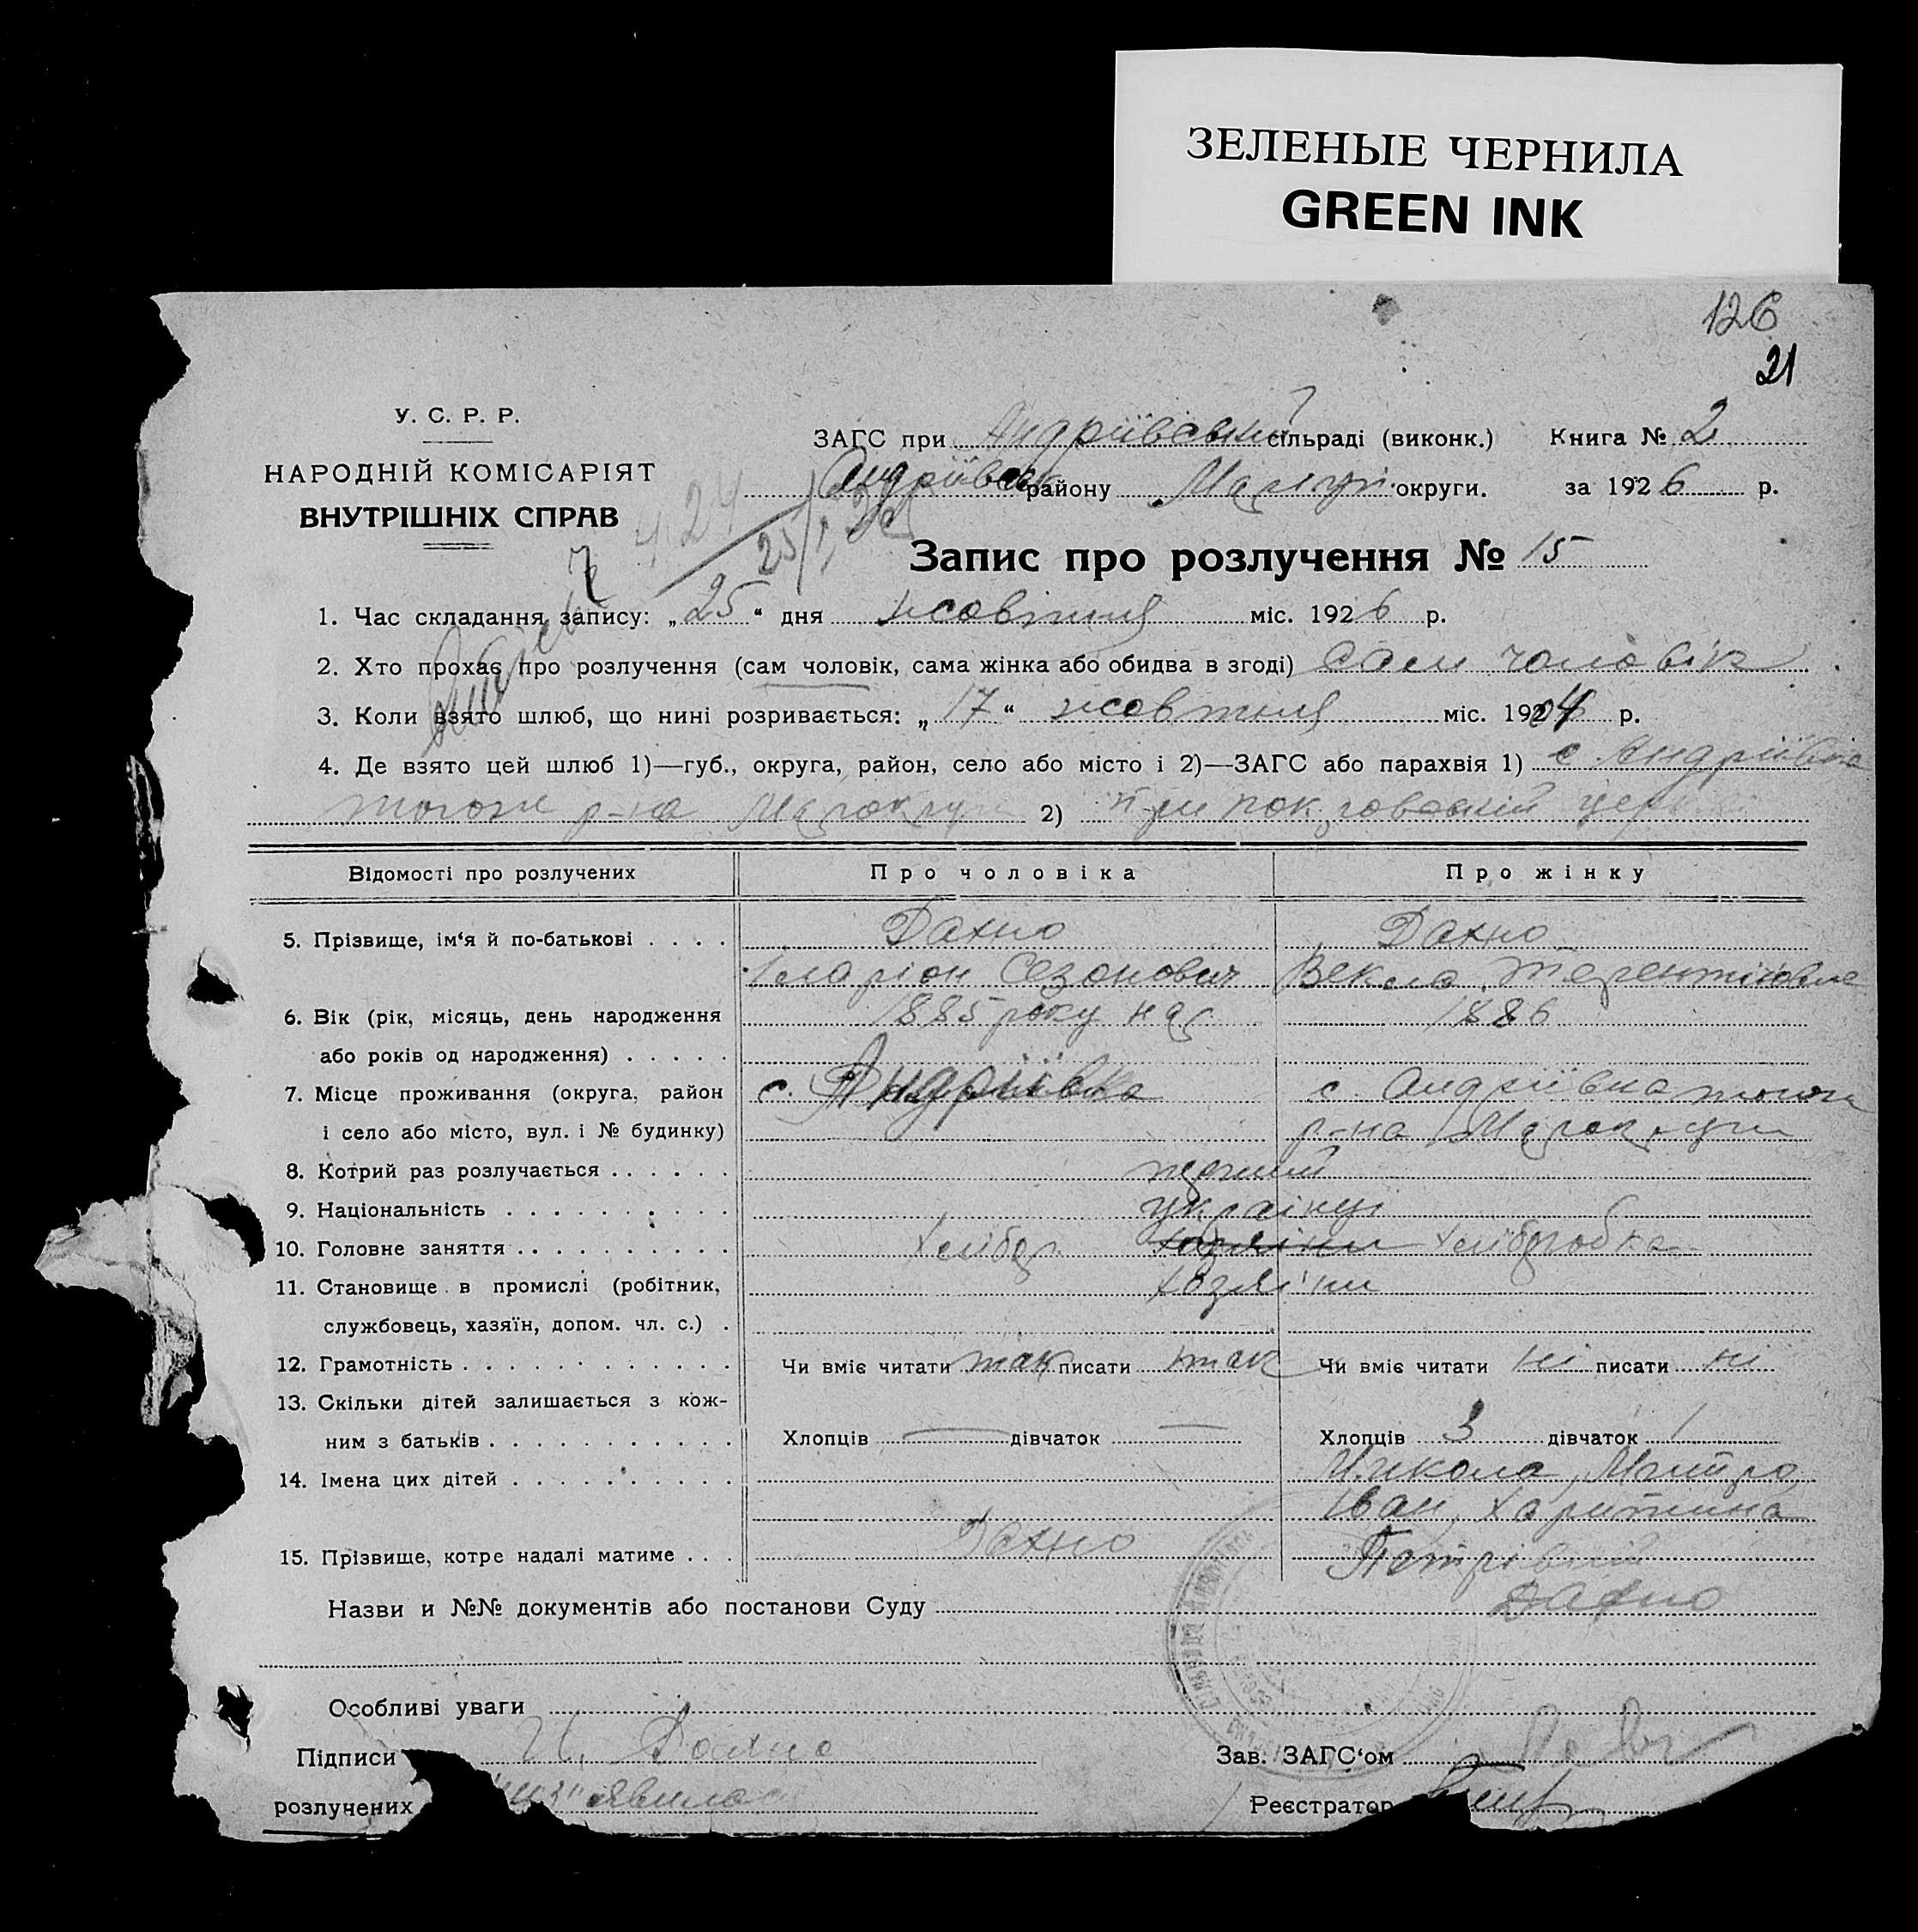 ЗЕЛЕНЫЕ ЧЕРНИЛА
GREEN INK
126
21
У. С. Р. Р.
НАРОДНІЙ КОМІСАРІЯТ
ВНУТРІШНІХ СПРАВ
ЗАГС при Андріївській сільраді (виконк.) Книга № 2
Андріївськ району Маріуп. округи. за 1926 р.
Запис про розлучення № 15
1. Час складання запису: „25“ дня жовтня міс. 1926 р.
2. Хто прохає про розлучення (сам чоловік, сама жінка або обидва в згоді) Сам чоловік
3. Коли взято шлюб, що нині розривається: „17“ жовтня міс. 1904 р.
4. Де взято цей шлюб 1)—губ., округа, район, село або місто і 2)—ЗАГС або парахвія 1) с Андріївка
тогож р-на 2) при
Відомості про розлучених Про чоловіка Про жінку
5. Прізвище, ім‘я й по-батькові Дахно Дахно
Іларіон Сезонович Векла
6. Вік (рік, місяць, день народження 1885 року нар 1886
або років од народження)
7. Місце проживання (округа, район с. Андріївка с. Андріївка тогож
і село або місто, вул. і № будинку) р-на
8. Котрий раз розлучається перший
9. Національність українці
10. Головне заняття хлібор хліборобка
11. Становище в промислі (робітник, хазяїни
службовець, хазяїн, допом. чл. с.)
12. Грамотність Чи вміє читати так писати так Чи вміє читати ні писати ні
13. Скільки дітей залишається з кож-
ним з батьків Хлопців — дівчаток — Хлопців 3 дівчаток 1
14. Імена цих дітей Микола, Митро,
Іван, Харитина
15. Прізвище, котре надалі матиме Дахно
Назви и №№ документів або постанови Суду Дахно
Особливі уваги
Підписи И. Дахно Зав. ЗАГС‘ом
розлучених Реєстратор